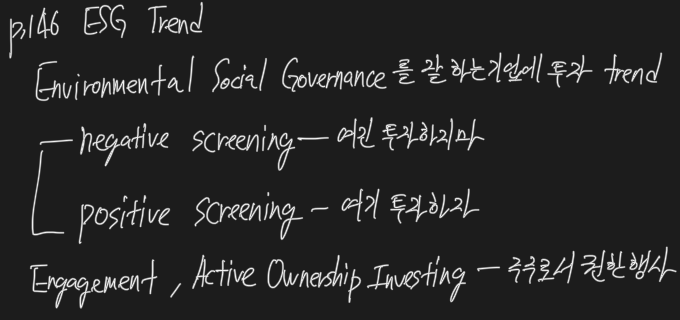 p.146 ESG Trend
Environmental Social Governance를 잘 하는기업에 투자 trend
negative screening — 여긴 투자하지마
positive screening - 여기 투자하자
Engagement, Active Ownership Investing - 주주로서 권한행사